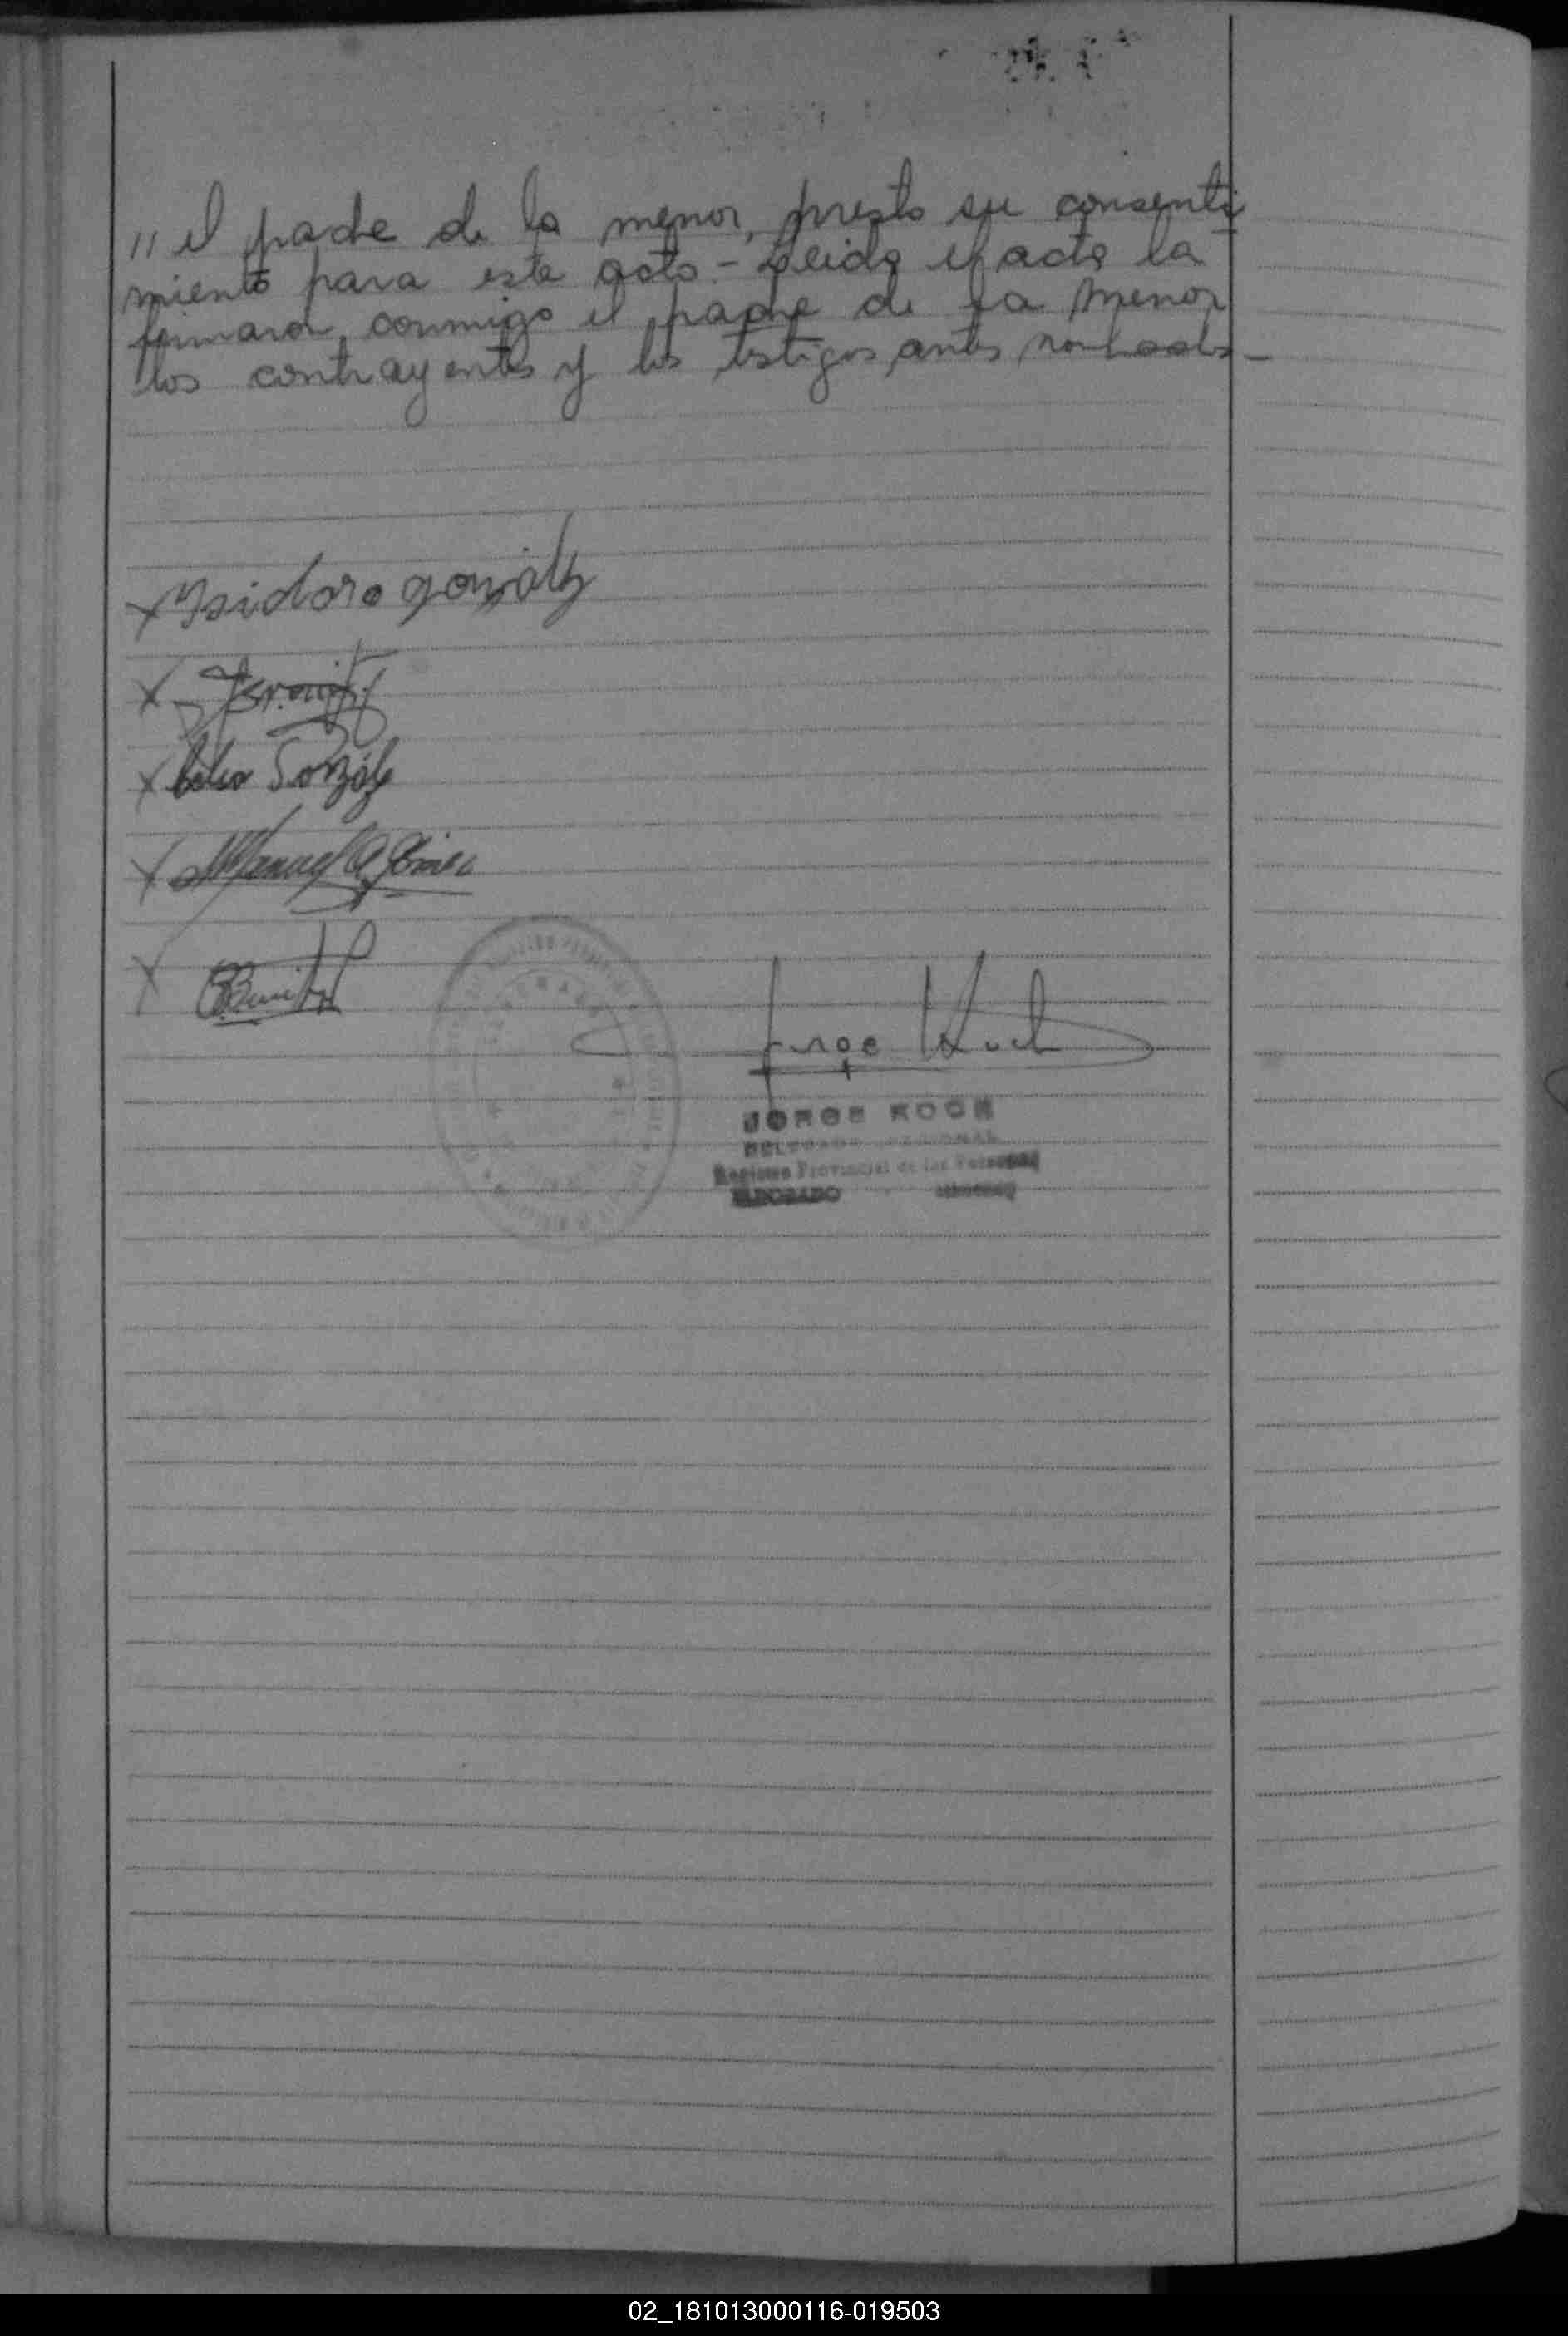 // el padre de la menor, presto su consenti
miento para este acto - Leida el acta la
firmaron conmigo el padre de la menor
los contrayentes y los testigos antes nombrados -
Ysidoro gonzález
González
Manuel
Jorge Koch
JORGE KOCH
DELEGADO
Registro Provincial de las Personas
ELDORADO MISIONES
02_181013000116-019503